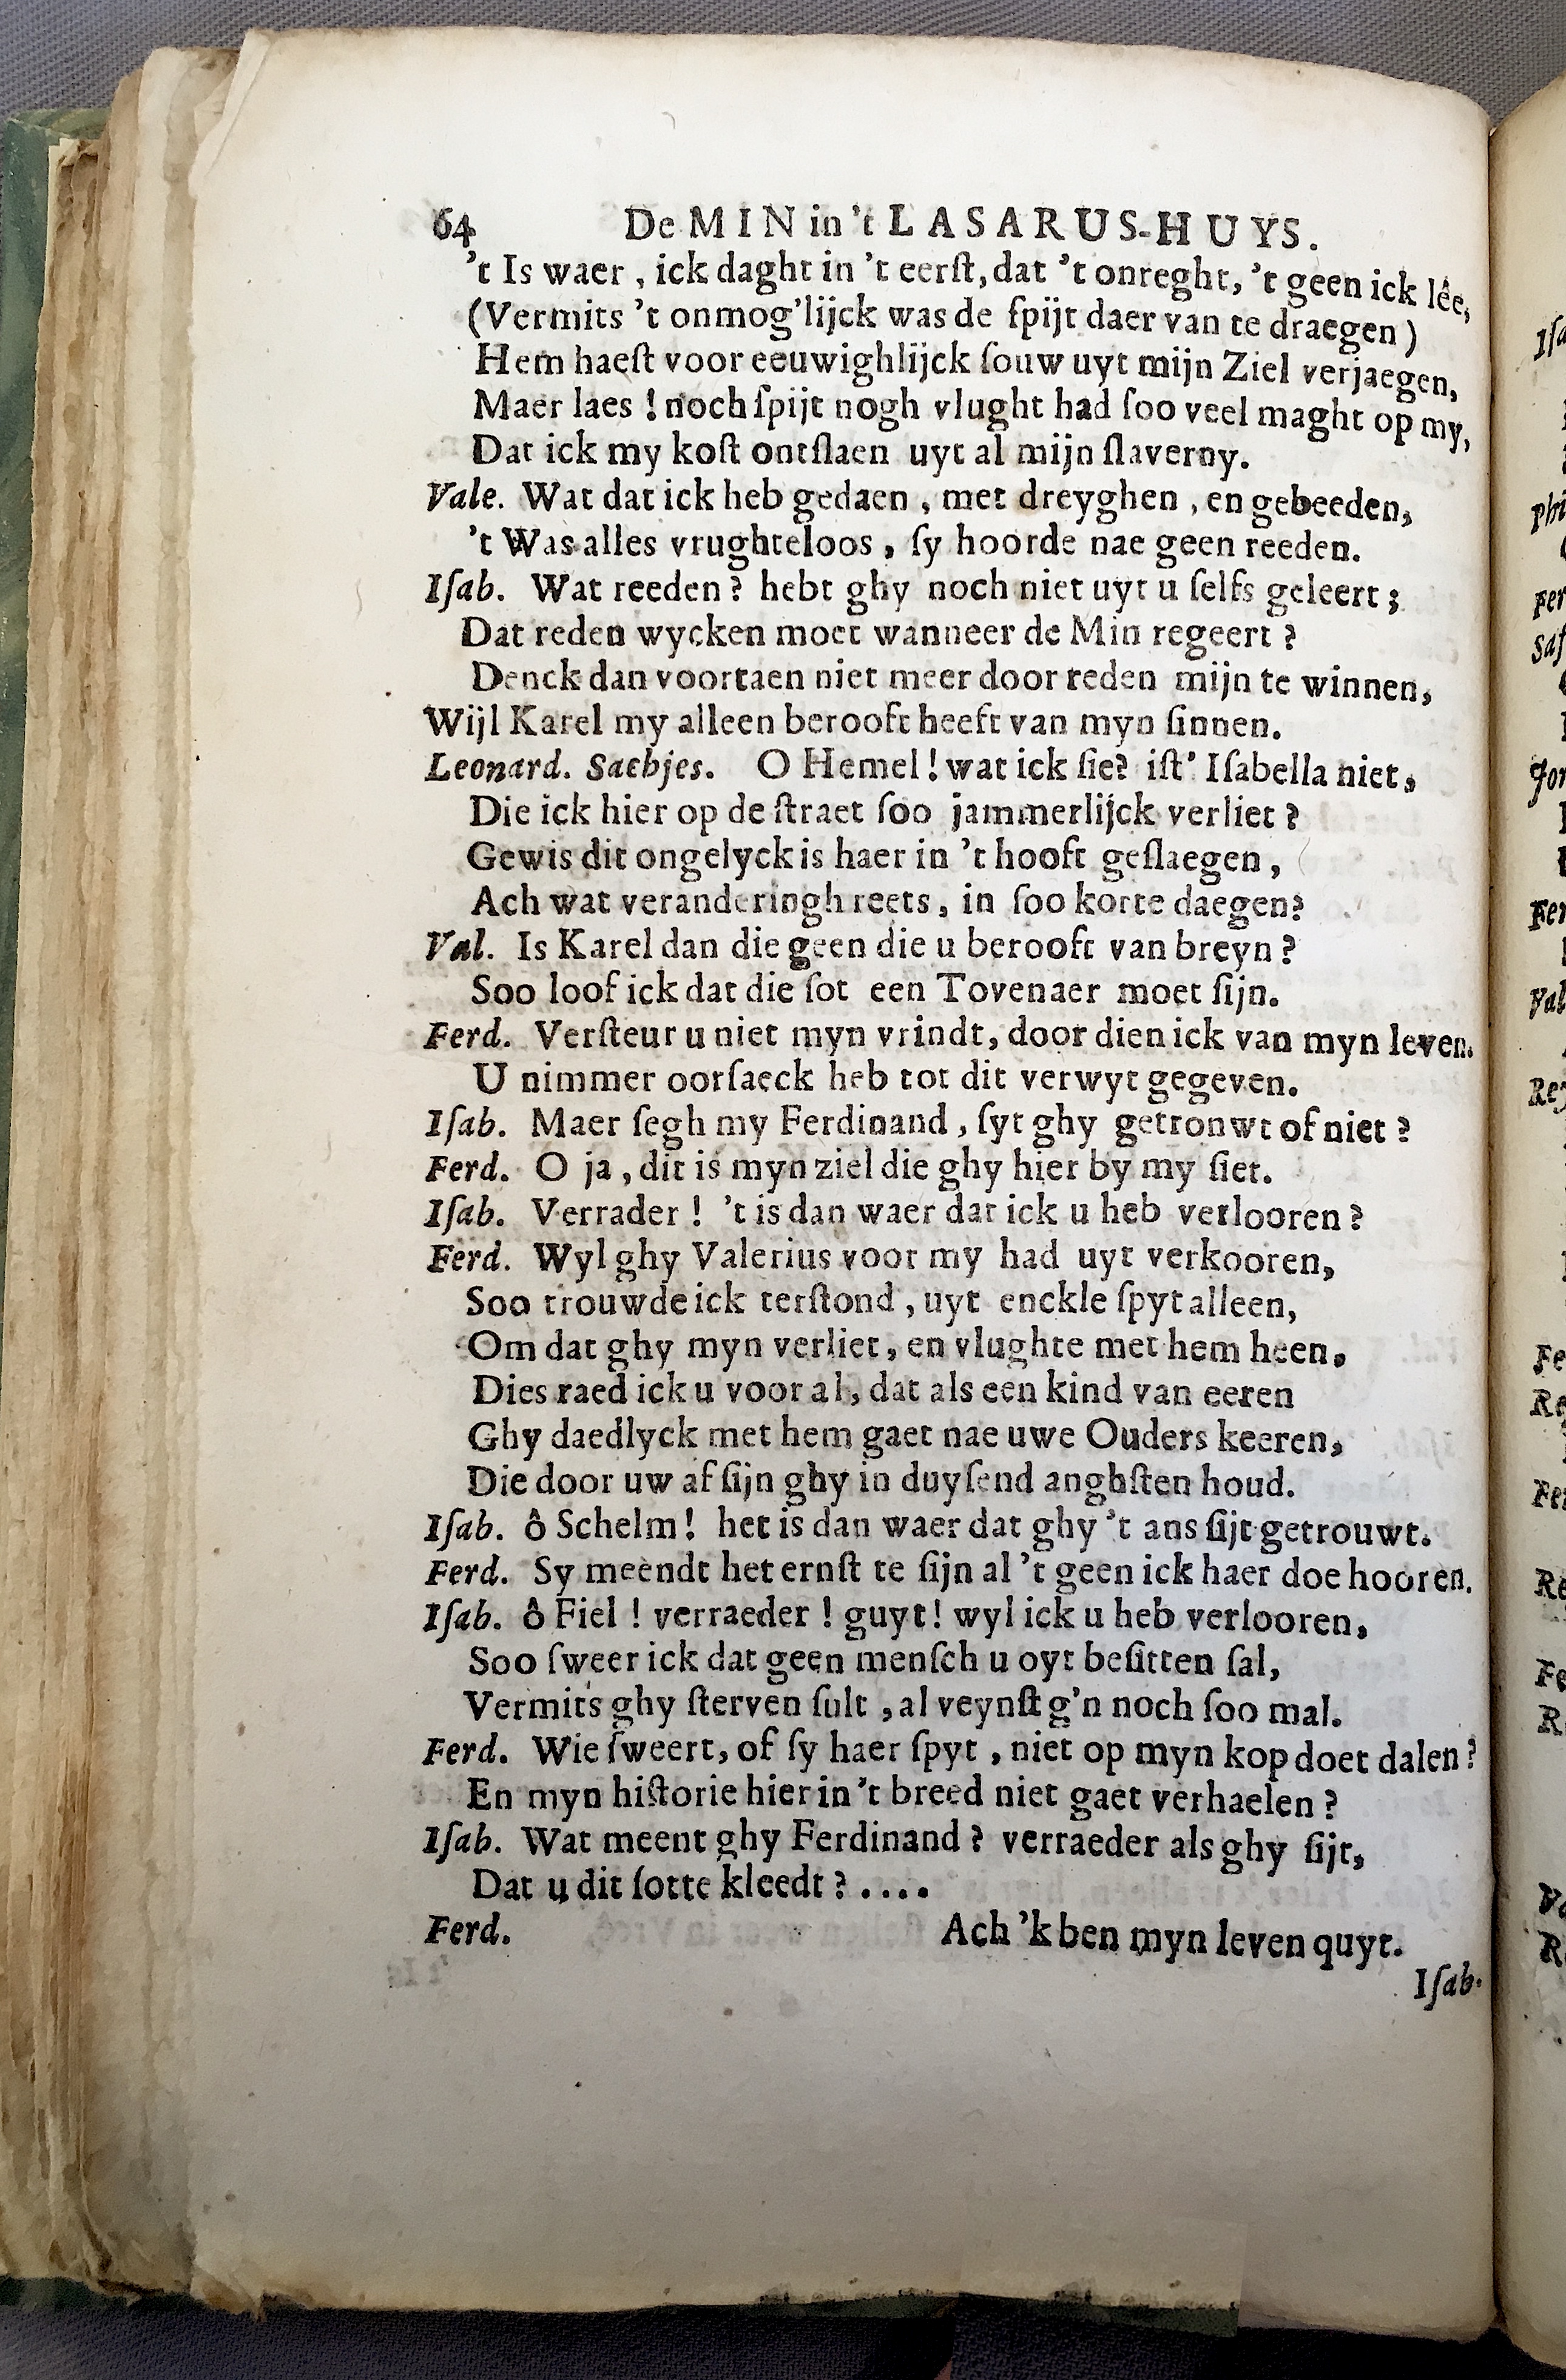 64 De MIN in 't LASARUS-HUYS.
't Is waer, ick daght in 't eerſt, dat 't onreght, 't geen ick lêe,
(Vermits 't onmog'lijck was de ſpijt daer van te draegen)
Hem haeſt voor eeuwighlijck ſouw uyt mijn Ziel verjaegen,
Maer laes! noch ſpijt nogh vlught had ſoo veel maght op my,
Dat ick my koſt ontſlaen uyt al mijn ſlaverny.
Vale. Wat dat ick heb gedaen, met dreyghen, en gebeeden,
't Was alles vrughteloos, ſy hoorde nae geen reeden.
Iſab. Wat reeden? hebt ghy noch niet uyt u ſelfs geleert;
Dat reden wycken moet wanneer de Min regeert?
Denck dan voortaen niet meer door reden mijn te winnen,
Wijl Karel my alleen berooft heeft van myn ſinnen.
Leonard. Saebjes. O Hemel! wat ick ſie? iſt' Iſabella niet,
Die ick hier op de ſtraet ſoo jammerlijck verliet?
Gewis dit ongelyck is haer in 't hooft geſlaegen,
Ach wat veranderingh reets, in ſoo korte daegen?
Val. Is Karel dan die geen die u berooft van breyn?
Soo loof ick dat die ſot een Tovenaer moet ſijn.
Ferd. Verſteur u niet myn vrindt, door dien ick van myn leven.
U nimmer oorſaeck heb tot dit verwyt gegeven.
Iſab. Maer ſegh my Ferdinand, ſyt ghy getronwt of niet?
Ferd. O ja, dit is myn ziel die ghy hier by my ſiet.
Iſab. Verrader! 't is dan waer dat ick u heb verlooren?
Ferd. Wyl ghy Valerius voor my had uyt verkooren,
Soo trouwde ick terſtond, uyt enckle ſpyt alleen,
Om dat ghy myn verliet, en vlughte met hem heen,
Dies raed ick u voor al, dat als een kind van eeren
Ghy daedlyck met hem gaet nae uwe Ouders keeren,
Die door uw af ſijn ghy in duyſend anghſten houd.
Iſab. ô Schelm! het is dan waer dat ghy 't ans ſijt getrouwt.
Ferd. Sy meendt het ernſt te ſijn al 't geen ick haer doe hooren.
Iſab. ô Fiel! verraeder! guyt! wyl ick u heb verlooren,
Soo ſweer ick dat geen menſch u oyt beſitten ſal,
Vermits ghy ſterven ſult, al veynſt g'n noch ſoo mal.
Ferd. Wie ſweert, of ſy haer ſpyt, niet op myn kop doet dalen?
En myn hiſtorie hier in 't breed niet gaet verhaelen?
Iſab. Wat meent ghy Ferdinand? verraeder als ghy ſijt,
Dat u dit ſotte kleedt?....
Ferd. Ach 'k ben myn leven quyt.
Iſab.